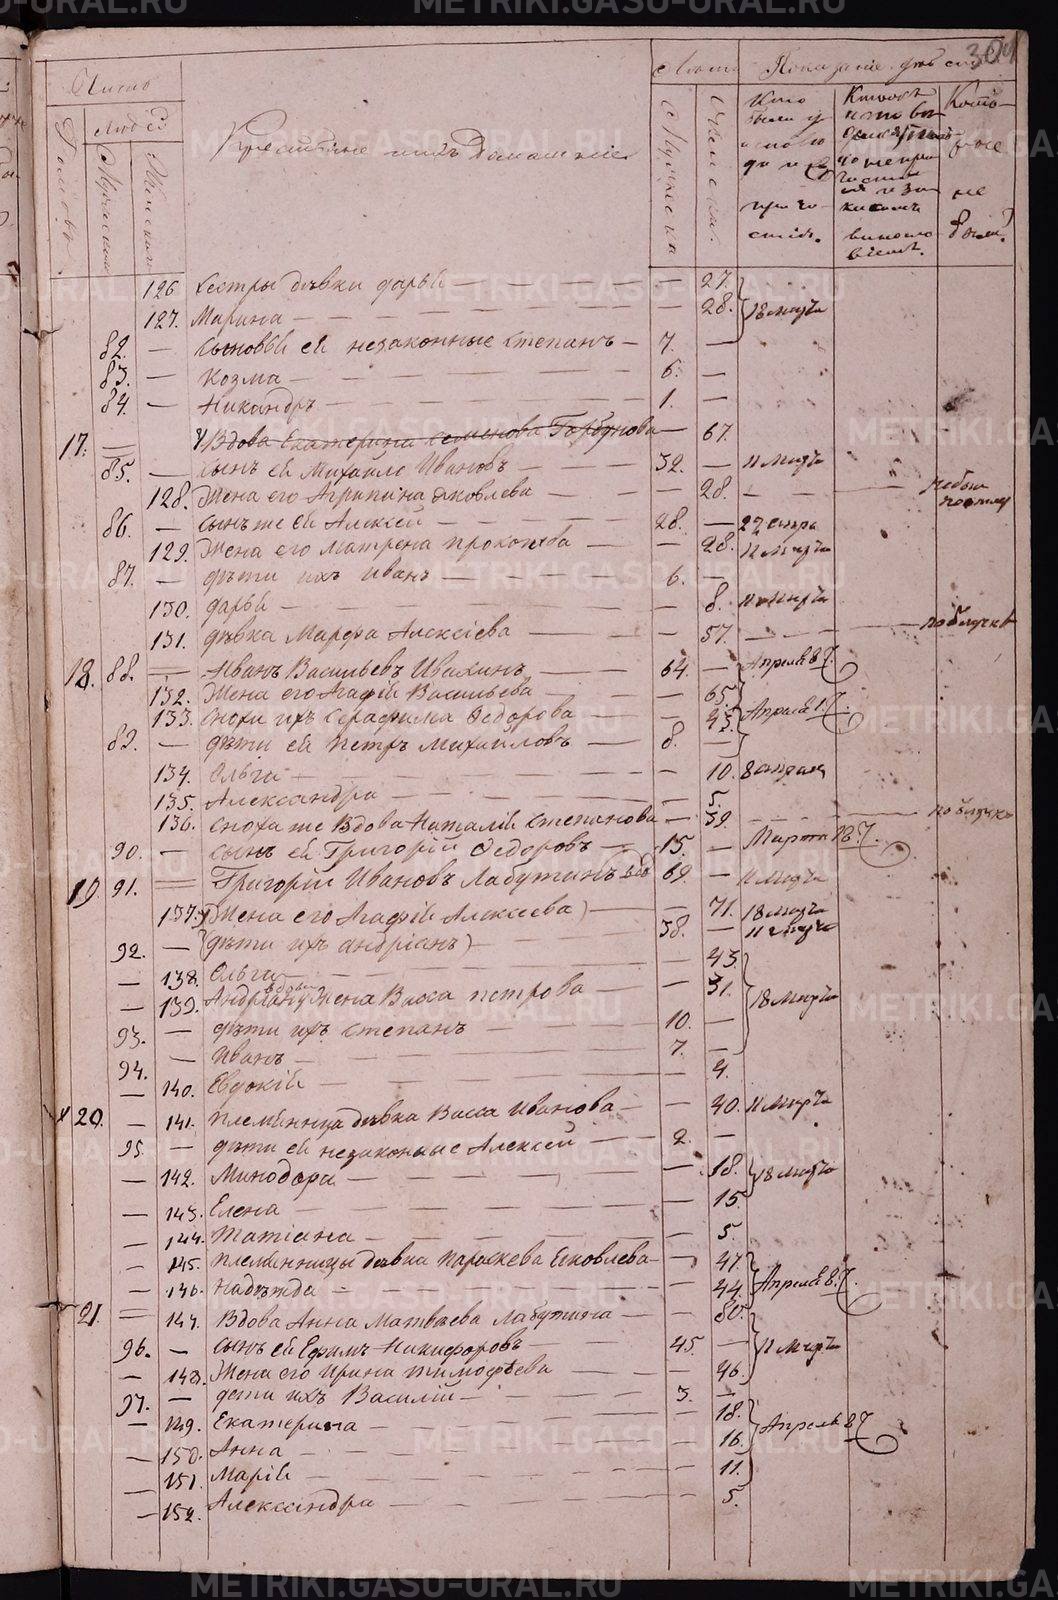 304
Число
Домовъ
Людей
Мужеска
Женска
Крестьяне и ихъ Домашніе
Лѣта
Мужеска
Женска
Показаніе
Кто
были у
исповѣ
ди и
при ча
стія.
Которые
не
были?
126 Сестры дѣвки Дарья — 27.
127. Марина — 28. 18 марта
82. — Сыновья ея незаконные Степанъ — 7. —
83. — Козма — 6. —
84. — Никандръ — 1. —
17. Вдова Екатерина Семенова Горбунова — 67.
85. — Сынъ ея Михайло Ивановъ — 32. — 11 Марта
128. Жена его Агрипина Яковлева — 28. —
86. — Сынъ же ея Алексей — 28. —
129. Жена его Матрена Прокопьева — 28. 11 Марта
87. — дѣти ихъ Иванъ — 6. —
130. Дарья — 8. 11 Марта
131. дѣвка Марфа Алексіева — 57. — по отлучкѣ
18. 88. Иванъ Васильевъ Ивахинъ — 64. — Апреля 8
132. Жена его Агафья Васильева — 65.
133. Сноха ихъ Серафима Федорова — 43. Апреля 1.
89. — дѣти ея Петръ Михаиловъ — 8. —
134. Ольга — 10. 8 апреля
135. Александра — 5.
136. Сноха же Вдова Наталія Степанова — 39. — по отлучкѣ
90. — Сынъ ея Григорій Федоровъ — 15. — Марта 18.
19. 91. Григорій Ивановъ Лабутинъ вдо — 69. — 11 Марта
137. (Жена его Агафья Алексеева) — 71. 18 марта
92. — (дѣти ихъ Андріанъ) — 38. — 11 марта
138. Ольга — 43.
139. Андріану Жена вдова Васса Петрова — 31. 18 Марта
93. — дѣти ихъ Степанъ — 10. —
94. — Иванъ — 7. —
140. Евдокія — 4.
20. — 141. Племянница дѣвка Васса Иванова — 40. 11 Марта
95. — дѣти ея незаконные Алексей — 2. —
— 142. Минодора — 18. 18 Марта
— 143. Елена — 15.
— 144. Татіана — 5.
— 145. Племянницы дѣвка Параскева Яковлева — 47.
— 146. Надежда — 44. Апреля 8.
21. 147. Вдова Анна Матвѣева Лабутина — 80.
96. — Сынъ ея Ефимъ Никифоровъ — 45. — 11 Марта
— 148. Жена его Ирина Тимофѣева — 46.
97. — дети ихъ Василій — 3. —
— 149. Екатерина — 18.
— 150. Анна — 16. Апреля 8
— 151. Марія — 11.
— 152. Александра — 5.
METRIKI.GASO-URAL.RU